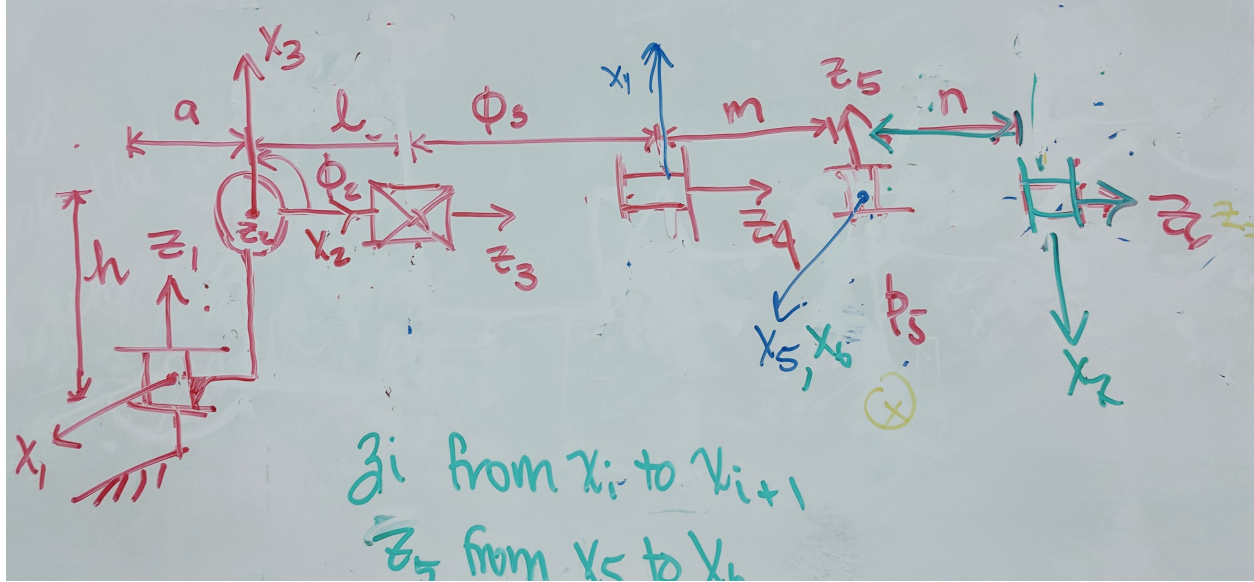 X3
a
l
Φ3
X4
m
Z5
n
h
Z1
Z2
Φ2
X2
Z3
Z4
Z6
X1
X5, X6
b5
X
X7
Zi from Xi to Xi+1
Z5 from X5 to X6